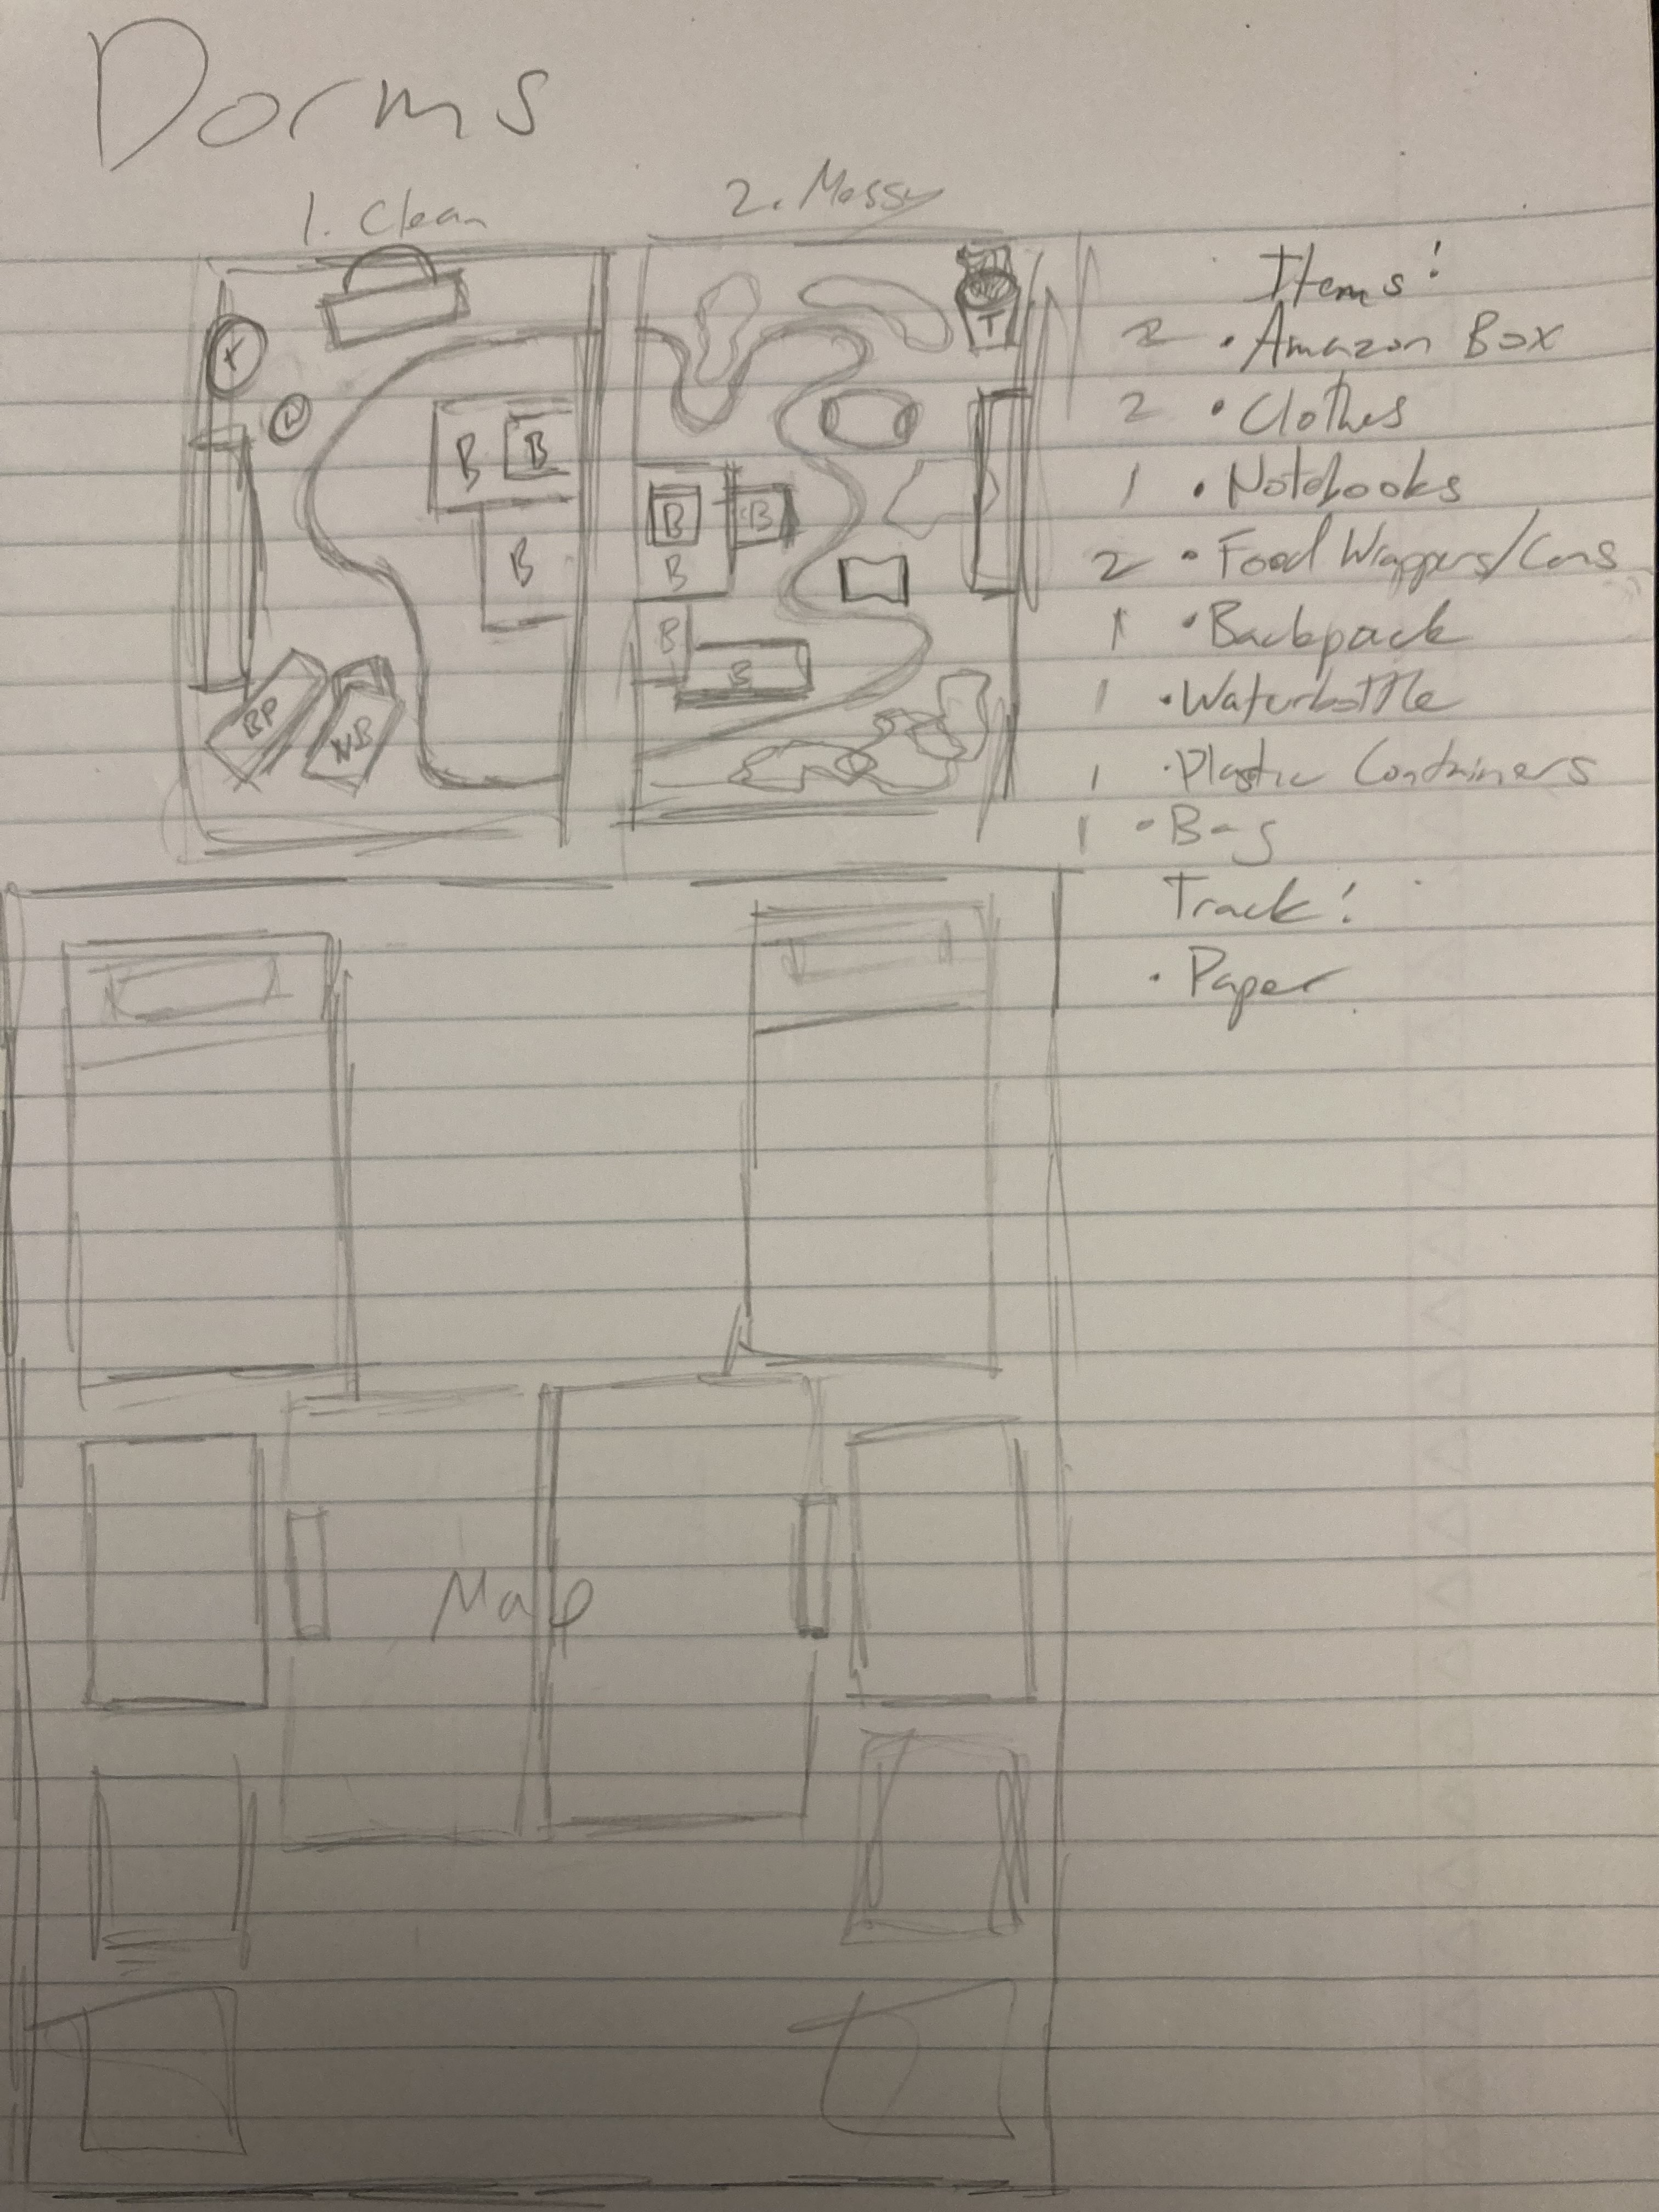 Dorms
1. Clean
2. Messy
B
B
B
BP
NB
T
B
B
B
B
B
Items:
2 • Amazon Box
2 • Clothes
1 • Notebooks
2 • Food Wrappers/Cans
1 • Backpack
1 • Waterbottle
1 • Plastic Containers
1 • Bag
Track:
• Paper
Map